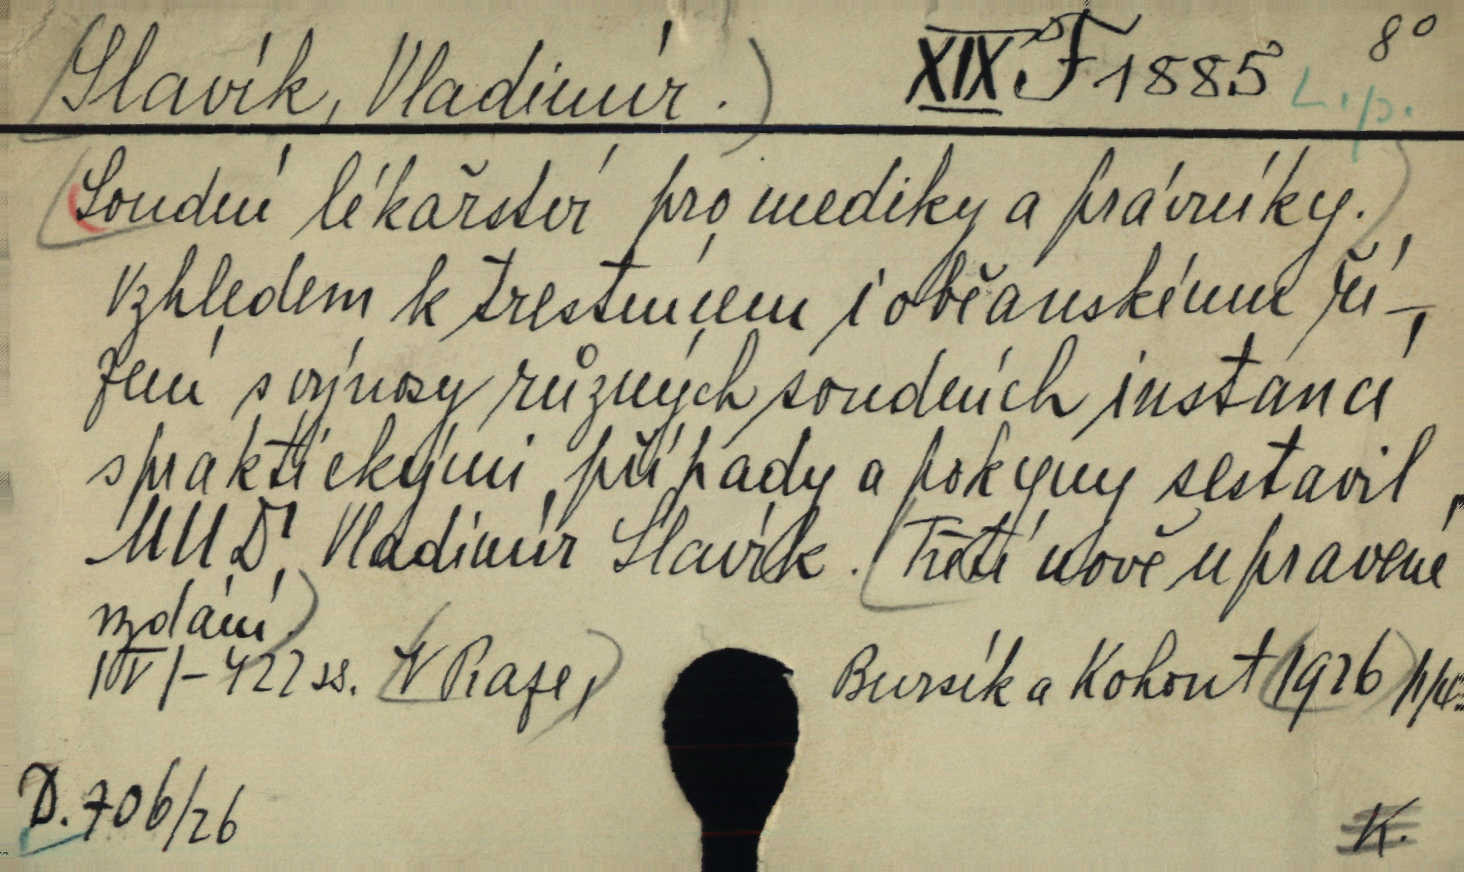 Slavík, Vladimír. XIX F 1885 8°
L.p.
Soudní lékařství pro mediky a právníky.
Vzhledem k trestnímu i občanskému ří-
zení s výnosy různých soudních instancí,
s praktickými případy a pokyny sestavil
MUDr. Vladimír Slavík. Třetí nově upravené
vydání.
422 ss. V Praze, Bursík a Kohout 1926
D. 706/26
K.